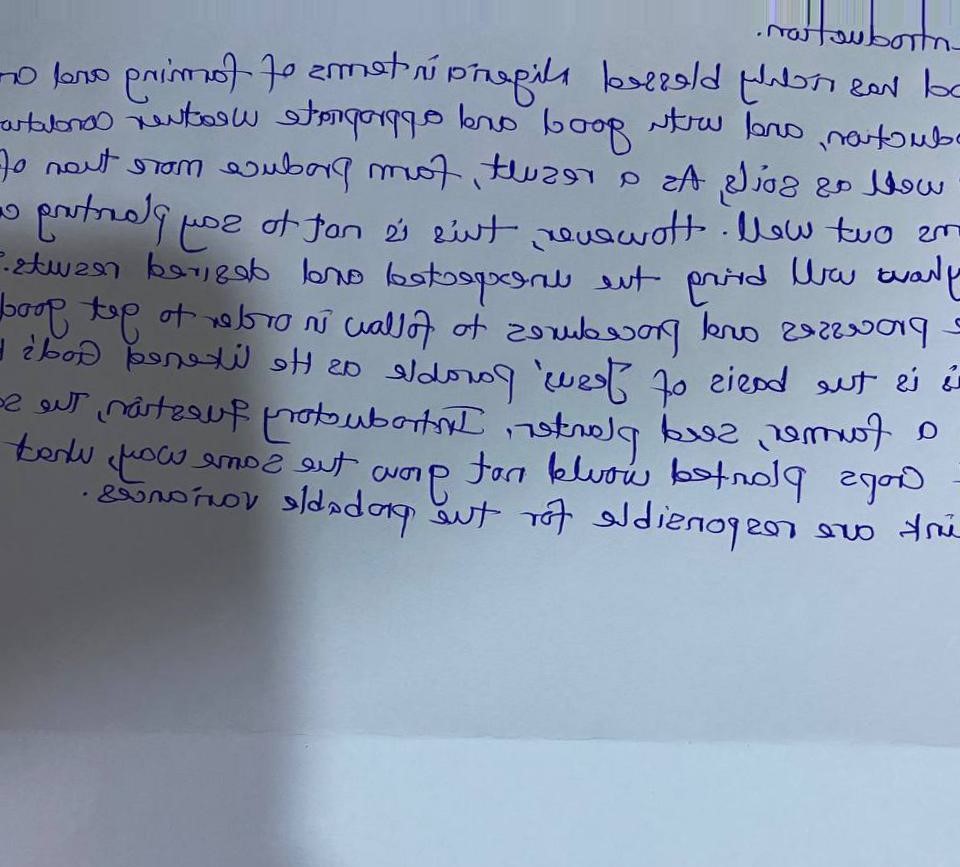 ntroduction.
od has richly blessed Nigeria in terms of farming and
oduction, and with good and appropriate weather conditio
well as soils, As a result, farm produce more than of
ms out well. However, this is not to say planting
will bring the unexpected and desired results.
e processes and procedures to follow in order to get good
is is the basis of Jesus' parable as He likened God's
a farmer, seed planter. Introductory question, The s
Crops planted would not grow the same way, what
ink are responsible for the probable variances.